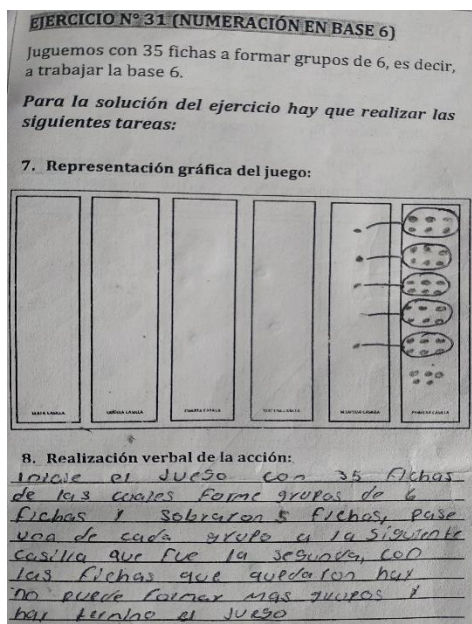 EJERCICIO N° 31 (NUMERACIÓN EN BASE 6)
Juguemos con 35 fichas a formar grupos de 6, es decir,
a trabajar la base 6.
Para la solución del ejercicio hay que realizar las
siguientes tareas:
7. Representación gráfica del juego:
SEXTA CASILLA QUINTA CASILLA CUARTA CASILLA TERCERA CASILLA SEGUNDA CASILLA PRIMERA CASILLA
8. Realización verbal de la acción:
Inicie el Juego con 35 Fichas
de las cuales Forme grupos de 6
Fichas y Sobraron 5 Fichas, pase
una de cada grupo a la Siguiente
casilla que Fue la segunda, con
las Fichas que quedaron hay
no puede Formar mas grupos y
hay termino el Juego